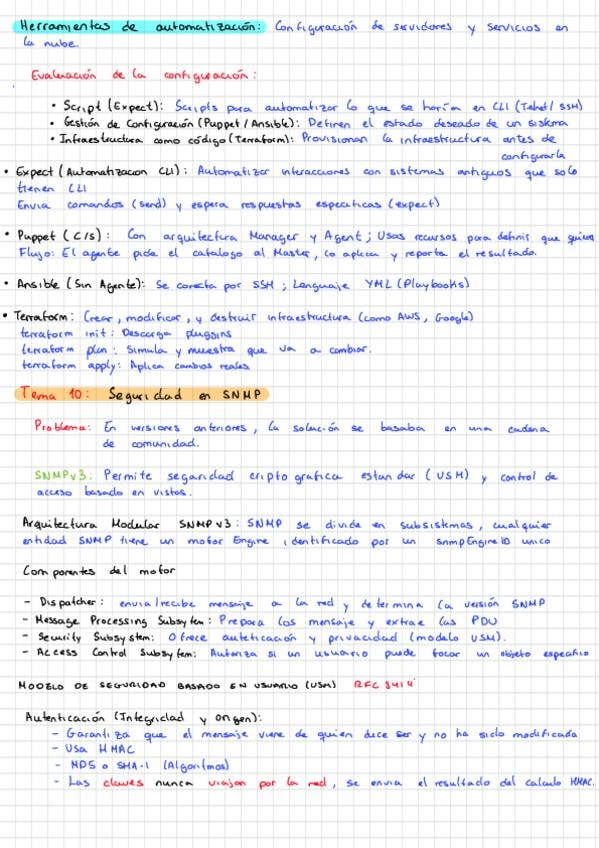 Herramientas de automatización: Configuración de servidores y servicios en
la nube.
Evaluación de la configuración:
• Script (Expect): Scripts para automatizar lo que se haría en CLI (Telnet/SSH)
• Gestión de Configuración (Puppet/Ansible): Definen el estado deseado de un sistema
• Infraestructura como código (Terraform): Provisionan la infraestructura antes de
configurarla
• Expect (Automatizacon CLI): Automatizar interacciones con sistemas antiguos que solo
tienen CLI
Envia comandos (send) y espera respuestas especificas (expect)
• Puppet (C/S): Con arquitectura Manager y Agent; Usas recursos para definir que quieres
Flujo: El agente pide el catalogo al Master, lo aplica y reporta el resultado.
• Ansible (Sin Agente): Se conecta por SSH; Lenguaje YML (Playbooks)
• Terraform: Crear, modificar, y destruir infraestructura (como AWS, Google)
terraform init: Descarga pluggins
terraform plan: Simula y muestra que va a cambiar.
terraform apply: Aplica cambios reales
Tema 10: Seguridad en SNMP
Problema: En versiones anteriores, la solución se basaba en una cadena
de comunidad.
SNMPv3: Permite seguridad criptografica estandar (USM) y control de
acceso basado en vistas.
Arquitectura Modular SNMPv3: SNMP se divide en subsistemas, cualquier
entidad SNMP tiene un motor Engine identificado por un snmpEngineID unico
Componentes del motor
- Dispatcher: envia/recibe mensaje a la red y determina la versión SNMP
- Message Processing Subsytem: Prepara los mensaje y extrae las PDU
- Security Subsystem: Ofrece auteticación y privacidad (modelo USM).
- Access Control Subsytem: Autoriza si un usuario puede tocar un objeto especifico
MODELO DE SEGURIDAD BASADO EN USUARIO (USM) RFC 3414
Autenticación (Integridad y origen):
- Garantiza que el mensaje viene de quien dice ser y no ha sido modificado
- Usa HMAC
- MD5 o SHA-1 (Algoritmos)
- Las claves nunca viajan por la red, se envia el resultado del calculo HMAC.